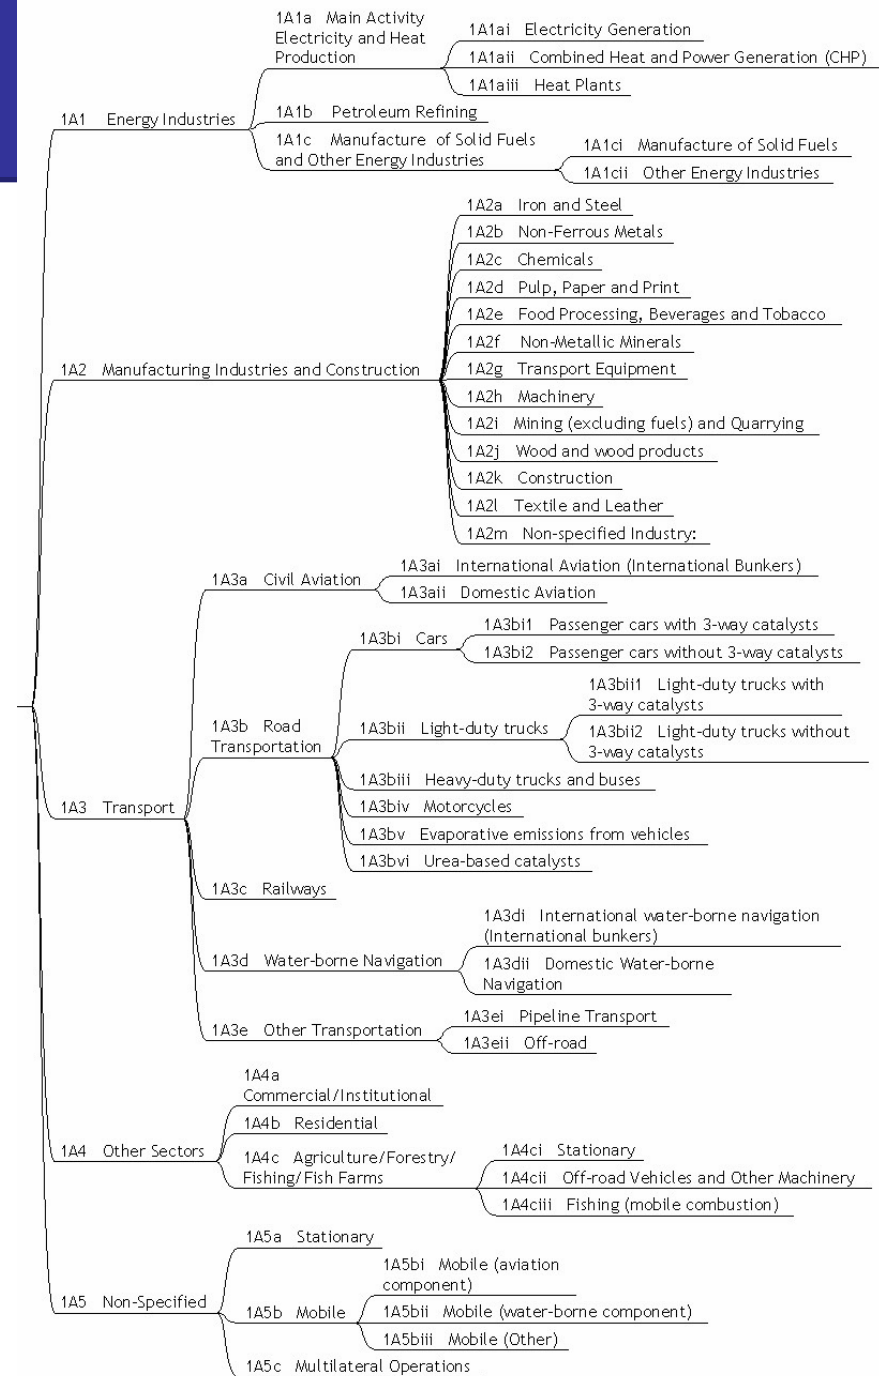 1A1a Main Activity
Electricity and Heat
Production
1A1ai Electricity Generation
1A1aii Combined Heat and Power Generation (CHP)
1A1aiii Heat Plants
1A1 Energy Industries
1A1b Petroleum Refining
1A1c Manufacture of Solid Fuels
and Other Energy Industries
1A1ci Manufacture of Solid Fuels
1A1cii Other Energy Industries
1A2a Iron and Steel
1A2b Non-Ferrous Metals
1A2c Chemicals
1A2d Pulp, Paper and Print
1A2e Food Processing, Beverages and Tobacco
1A2f Non-Metallic Minerals
1A2 Manufacturing Industries and Construction
1A2g Transport Equipment
1A2h Machinery
1A2i Mining (excluding fuels) and Quarrying
1A2j Wood and wood products
1A2k Construction
1A2l Textile and Leather
1A2m Non-specified Industry:
1A3a Civil Aviation
1A3ai International Aviation (International Bunkers)
1A3aii Domestic Aviation
1A3bi Cars
1A3bi1 Passenger cars with 3-way catalysts
1A3bi2 Passenger cars without 3-way catalysts
1A3b Road
Transportation
1A3bii Light-duty trucks
1A3bii1 Light-duty trucks with
3-way catalysts
1A3bii2 Light-duty trucks without
3-way catalysts
1A3biii Heavy-duty trucks and buses
1A3 Transport
1A3biv Motorcycles
1A3bv Evaporative emissions from vehicles
1A3bvi Urea-based catalysts
1A3c Railways
1A3d Water-borne Navigation
1A3di International water-borne navigation
(International bunkers)
1A3dii Domestic Water-borne
Navigation
1A3e Other Transportation
1A3ei Pipeline Transport
1A3eii Off-road
1A4a
Commercial/Institutional
1A4b Residential
1A4 Other Sectors
1A4c Agriculture/Forestry/
Fishing/Fish Farms
1A4ci Stationary
1A4cii Off-road Vehicles and Other Machinery
1A4ciii Fishing (mobile combustion)
1A5a Stationary
1A5 Non-Specified
1A5b Mobile
1A5bi Mobile (aviation
component)
1A5bii Mobile (water-borne component)
1A5biii Mobile (Other)
1A5c Multilateral Operations